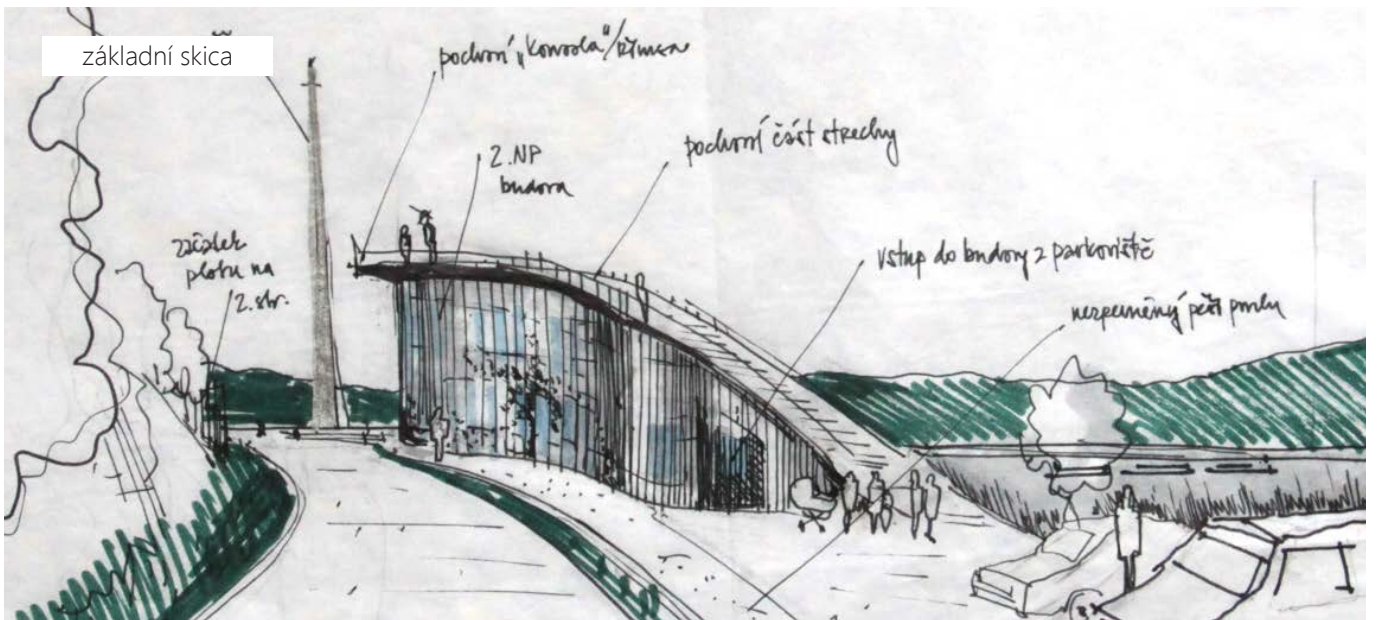 základní skica
pochozí "konzola"/římsa
2.NP
budova
pochozí část střechy
začátek
plotu na
2.str.
vstup do budovy z parkoviště
nezpevněný pěší